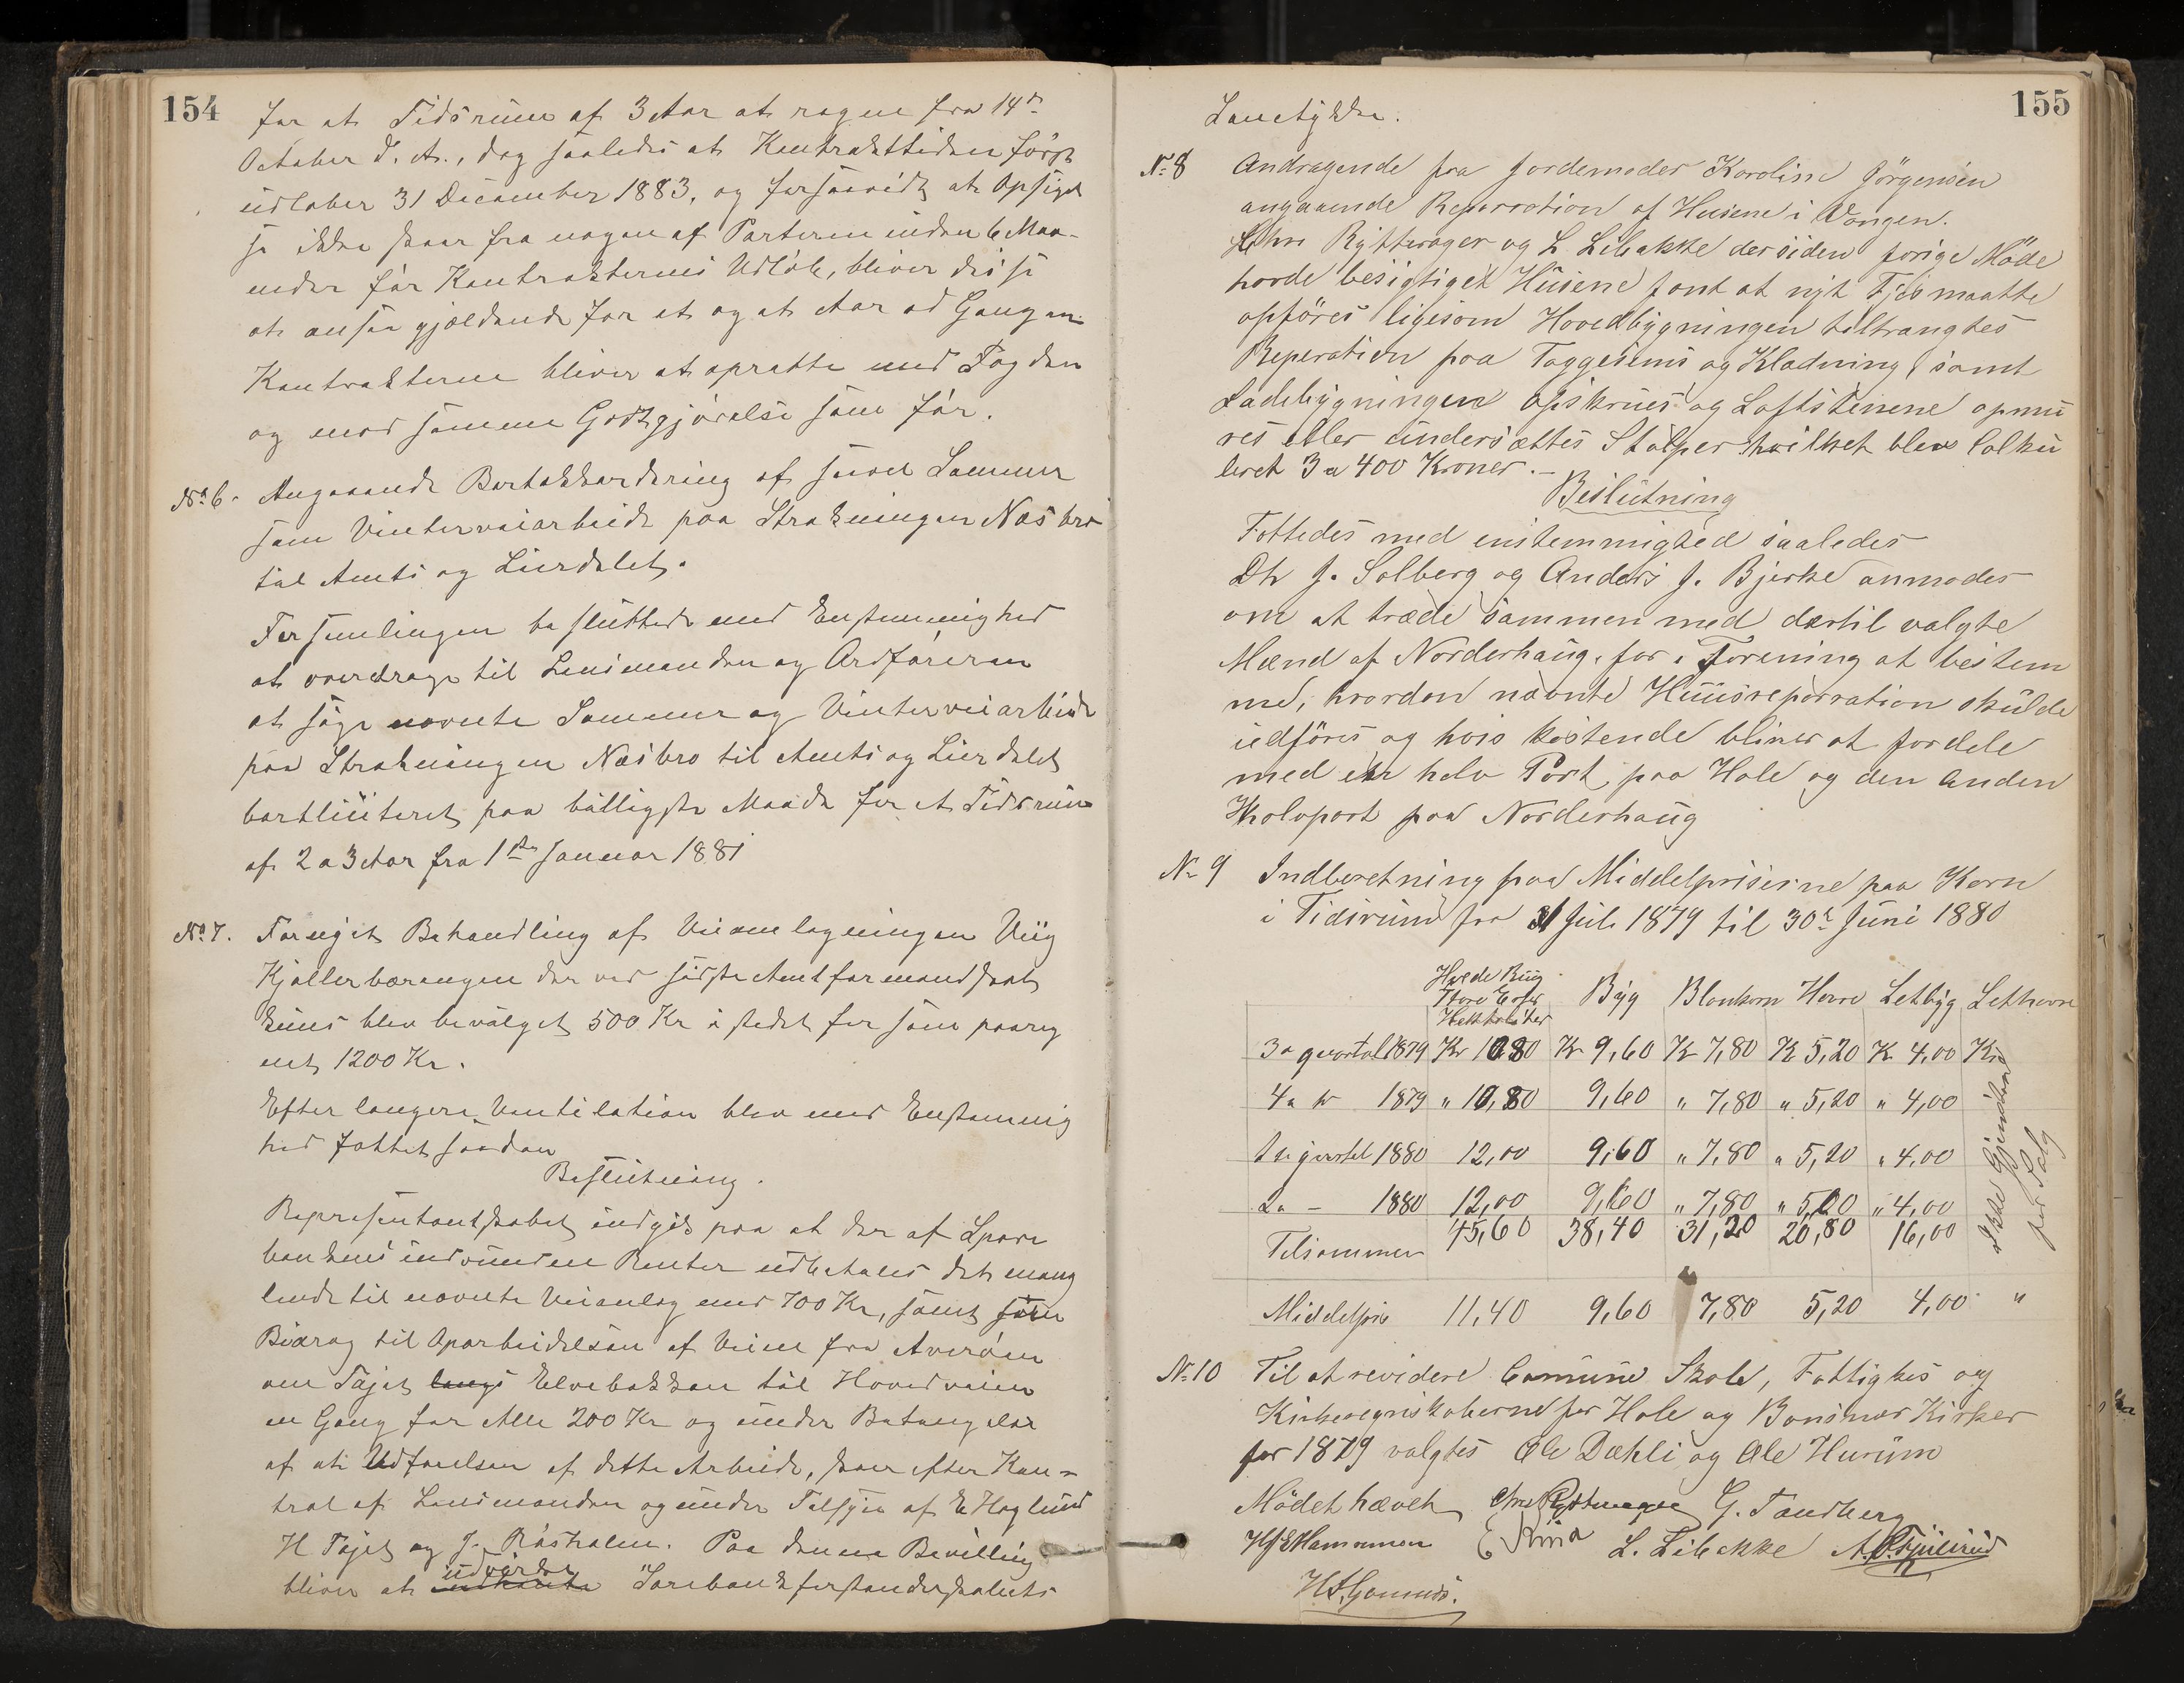 154
for et Tidsrum af 3 Aar at regne fra 14de
October d. A., dog saaledes at Kontrakttiden først
udløber 31 December 1883, og forsaavidt at Opsigel
se ikke skeer fra nogen af Parterne inden 6 Maa-
neder før Kontrakternes Udløb, bliver disse
at ansee gjældende for et og et Aar ad Gangen.
Kontrakterne bliver at oprette med Fogden
og mod samme Godtgjørelse som før.
No 6. Angaaende Bortakkordering af saavel Sommer
som Vinterveiarbeide paa Strækningen Næsbro
til Amts og Lierdalet.
Forsamlingen besluttede med Enstemmighed
at overdrage til Lensmanden og Ordføreren
at søge nævnte Sommer og Vinterveiarbeide
paa Strækningen Næsbro til Amts og Lierdalet
bortliciteret paa billigste Maade for et Tidsrum
af 2 a 3 Aar fra 1ste Januar 1881
No 7. Fornyet Behandling af Veiomlægningen Viig
Kjøllerbærangen der ved sidste Amtformandskab
kuns blev bevilget 500 Kr i stedet for som paareg
net 1200 Kr.
Efter længere Ventilation blev med Enstemmig
hed fattet saadan
Beslutning.
Repræsentantskabet indgik paa at der af Spare
bankens indvundne Renter udbetales det mang
lende til nævnte Veianlæg med 700 Kr, samt som
Bidrag til Oparbeidelsen af Veien fra Averøen
om Fajet langs Elvebakken til Hovedveien
en Gang for Alle 200 Kr og under Betingelse
af at Udførelsen af dette Arbeide, skeer efter Kon-
trol af Lensmanden og under Tilsyn af E Hoglund
H Fajet og J. Røsholm. Paa denne Bevilling
udvirke
bliver at indhente Sparebankforstanderskabets
155
Samtykke.
No 8 Andragende fra Jordemoder Karoline Jörgensen
angaaende Reparration af Husene i Vangen.
Chrs Rytterager og L. Libakke der siden forige Möde
havde besigtiget Husene fant at nyt Fjös maatte
opföres ligesom Hovedbygningen tiltrængtes
Reperation paa Taggesims og Kladning, samt
Ladebygningen opskrues og Loftstenene opmu
res eller undersættes Stolper hvilket blev Calku
leret 3 a 400 Kroner.-
Beslutning
Fattedes med enstemmighed saaledes
Dh J. Solberg og Anders J. Bjerke anmodes
om at træde sammen med dertil valgte
Mænd af Norderhaug, for i Forening at bestem
me, hvordan nævnte Huusreparration skulde
udföres og hvis kostende bliver at fordele
med en halv Part paa Hole og den anden
Halvpart paa Norderhaug
No 9 Indberetning paa Middelpriserne paa Korn
i Tidsrum fra 31 Juli 1879 til 30te Juni 1880
Hvede Rug
Store Erter Byg Blankorn Havre Letbyg Lethavre
Hektoliter
3e qvartal 1879 Kr 10,80 Kr 9,60 Kr 7,80 Kr 5,20 Kr 4,00 Kr
4e 1879 " 10,80 9,60 " 7,80 " 5,20 " 4,00
1ste qvartal 1880 12,00 9,60 " 7,80 " 5,20 " 4,00
2e - 1880 12,00 9,60 " 7,80 " 5,20 " 4,00
Tilsammen 45,60 38,40 31,20 20,80 16,00
Ikke Gjenstand
for Salg
Middelpris 11,40 9,60 7,80 5,20 4,00 "
No 10 Til at revidere Comune Skole, Fattigkes og
Kirkeregnskaberne for Hole og Bønsnæs Kirker
for 1879 valgtes Ole Dæhli og Ole Hurum
Mödet hævet Chrs Rytterager G. Tandberg
L. Libakke